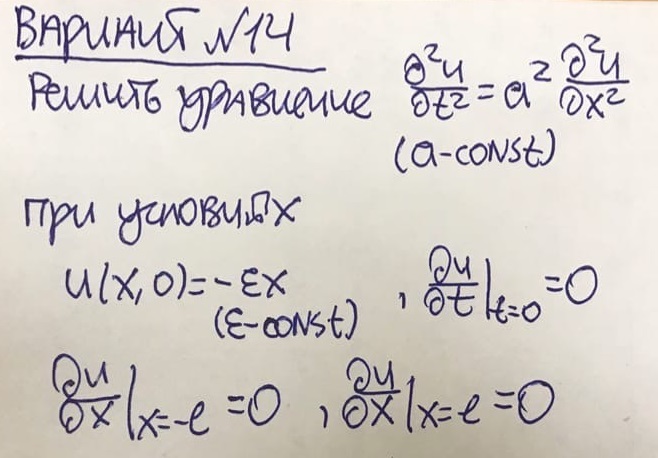 ВАРИАНТ №14
Решить уравнение ∂²u/∂t² = a² ∂²u/∂x²
(a-const)
при условиях
u(x,0)=-εx , ∂u/∂t|t=0 =0
(ε-const)
∂u/∂x|x=-e =0 , ∂u/∂x|x=e =0